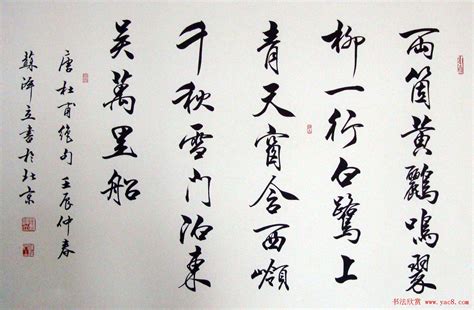 兩箇黄鸝鳴翠
柳一行白鷺上
青天窗含西嶺
千秋雪門泊東
吴萬里船
唐杜甫绝句 壬辰仲春
蘇澤立書於北京
书法欣赏
www.yac8.com